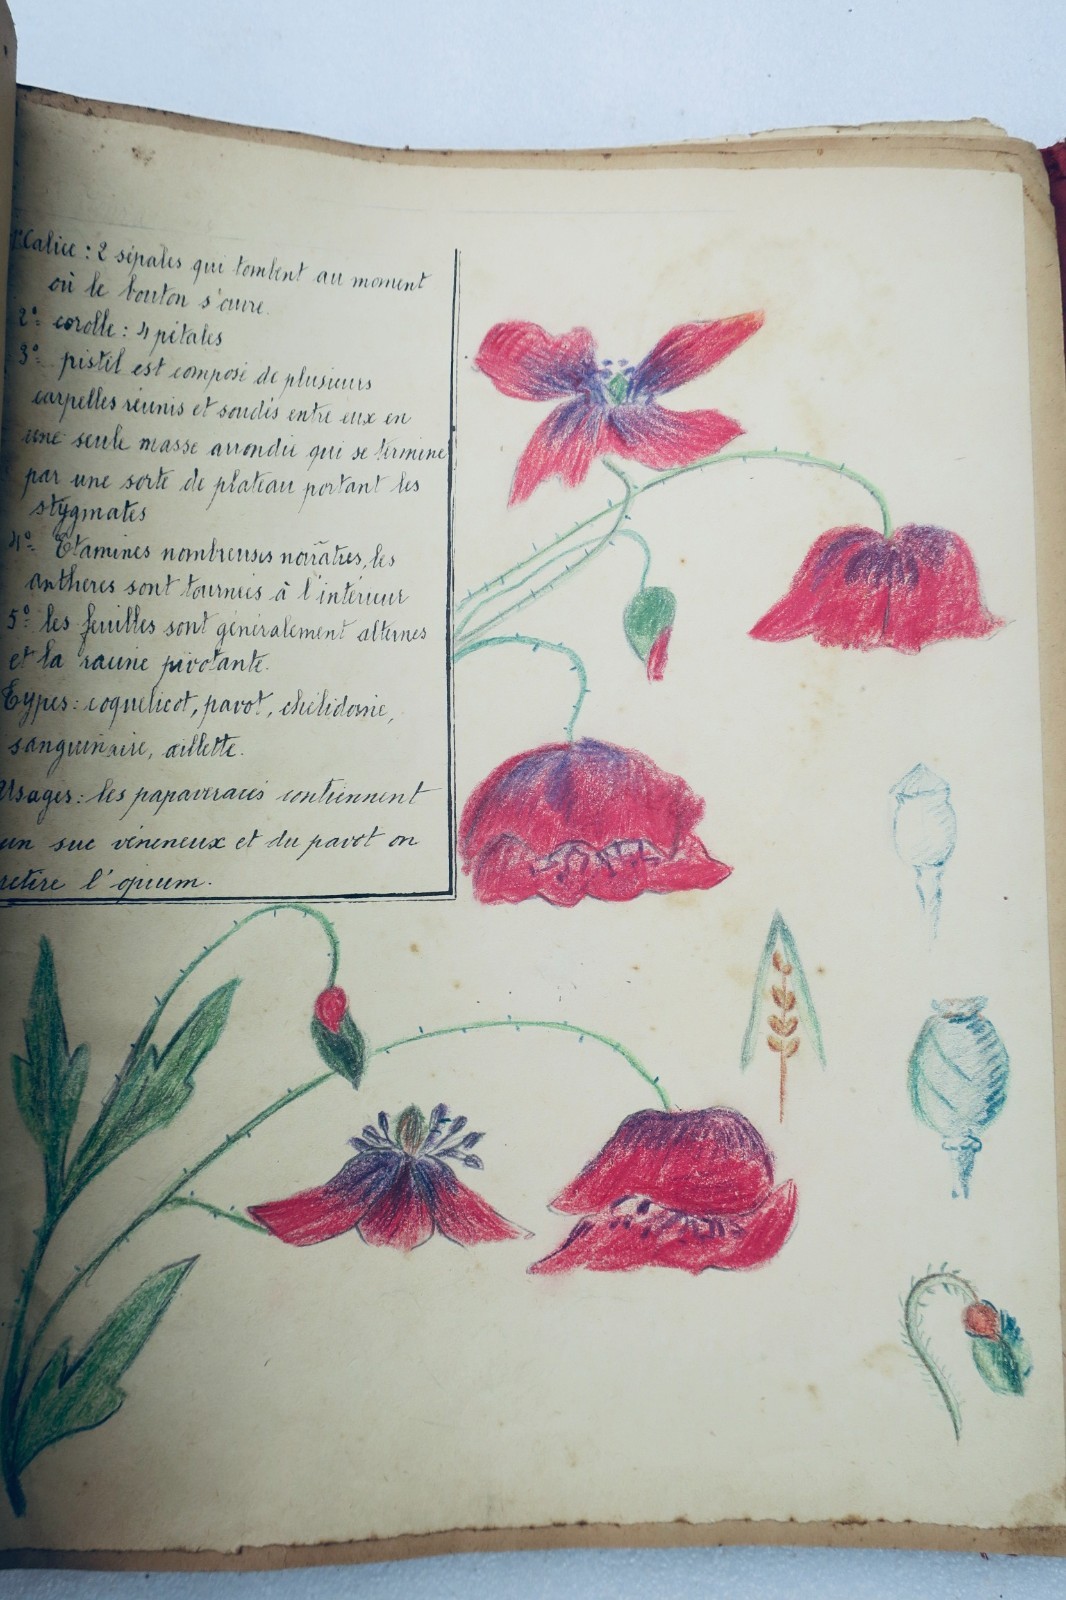 1º Calice : 2 sépales qui tombent au moment
où le bouton s'ouvre.
2º- corolle : 4 pétales
3º- pistil est composé de plusieurs
carpelles réunis et soudés entre eux en
une seule masse arrondie qui se termine
par une sorte de plateau portant les
stygmates
4º- Etamines nombreuses noirâtres, les
anthères sont tournées à l'intérieur
5º- les feuilles sont généralement alternes
et la racine pivotante.
Types : coquelicot, pavot, chélidoine,
sanguinaire, œillette.
Usages : les papavéracés contiennent
un suc vénéneux et du pavot on
retire l'opium.